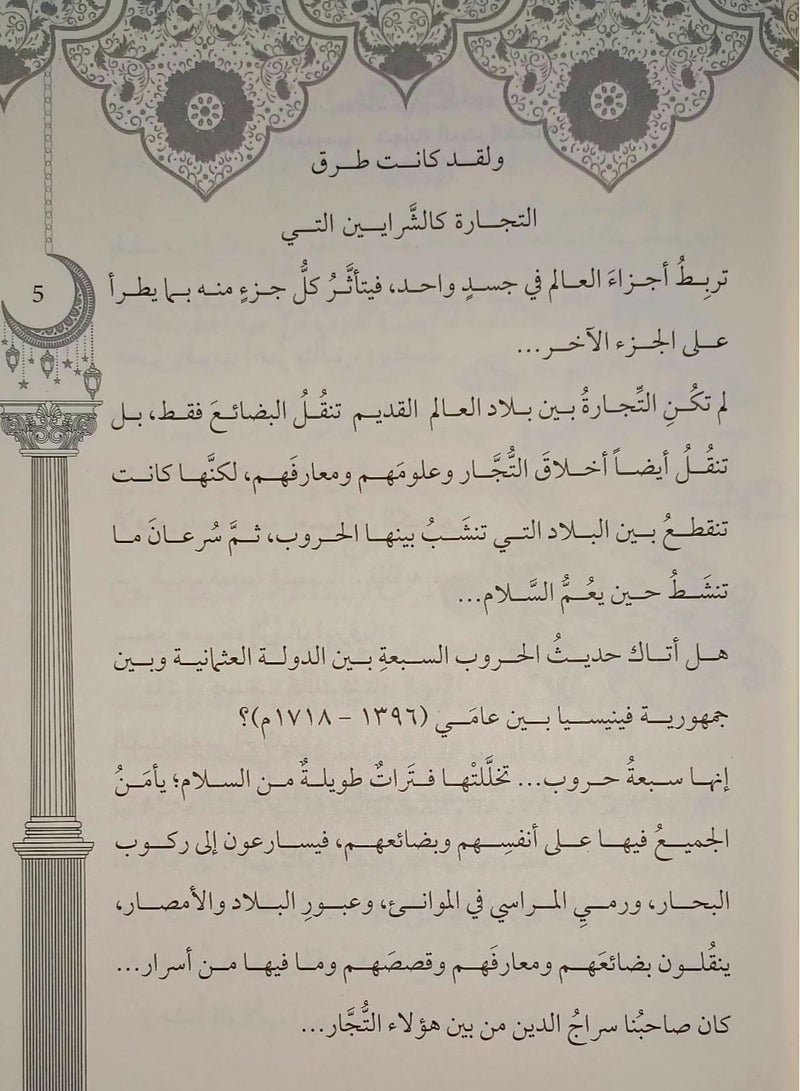 ولقد كانت طرق
التجارة كالشَّرايين التي
تربِطُ أجزاءَ العالم في جسدٍ واحد، فيتأثَّرُ كلُّ جزءٍ منه بما يطرأ
5
على الجزء الآخر...
لم تكُنِ التِّجارةُ بين بلاد العالم القديم تنقُلُ البضائعَ فقط، بل
تنقُلُ أيضاً أخلاقَ التُّجَّار وعلومَهم ومعارفَهم، لكنَّها كانت
تنقطعُ بين البلاد التي تنشَبُ بينها الحروب، ثمَّ سُرعانَ ما
تنشَطُ حين يعُمُّ السَّلام...
هل أتاك حديثُ الحروب السبعةِ بين الدولة العثمانية وبين
جمهورية فينيسيا بين عامَي (١٣٩٦ – ١٧١٨م)؟
إنها سبعةُ حروب... تخلَّلتْها فتَراتٌ طويلةٌ من السلام؛ يأمَنُ
الجميعُ فيها على أنفسِهم وبضائعهم، فيسارعون إلى ركوب
البحار، ورميِ المراسي في الموانئ، وعبورِ البلاد والأمصار،
ينقُلون بضائعَهم ومعارفَهم وقصصَهم وما فيها من أسرار...
كان صاحبُنا سراجُ الدين من بين هؤلاء التُّجَّار...